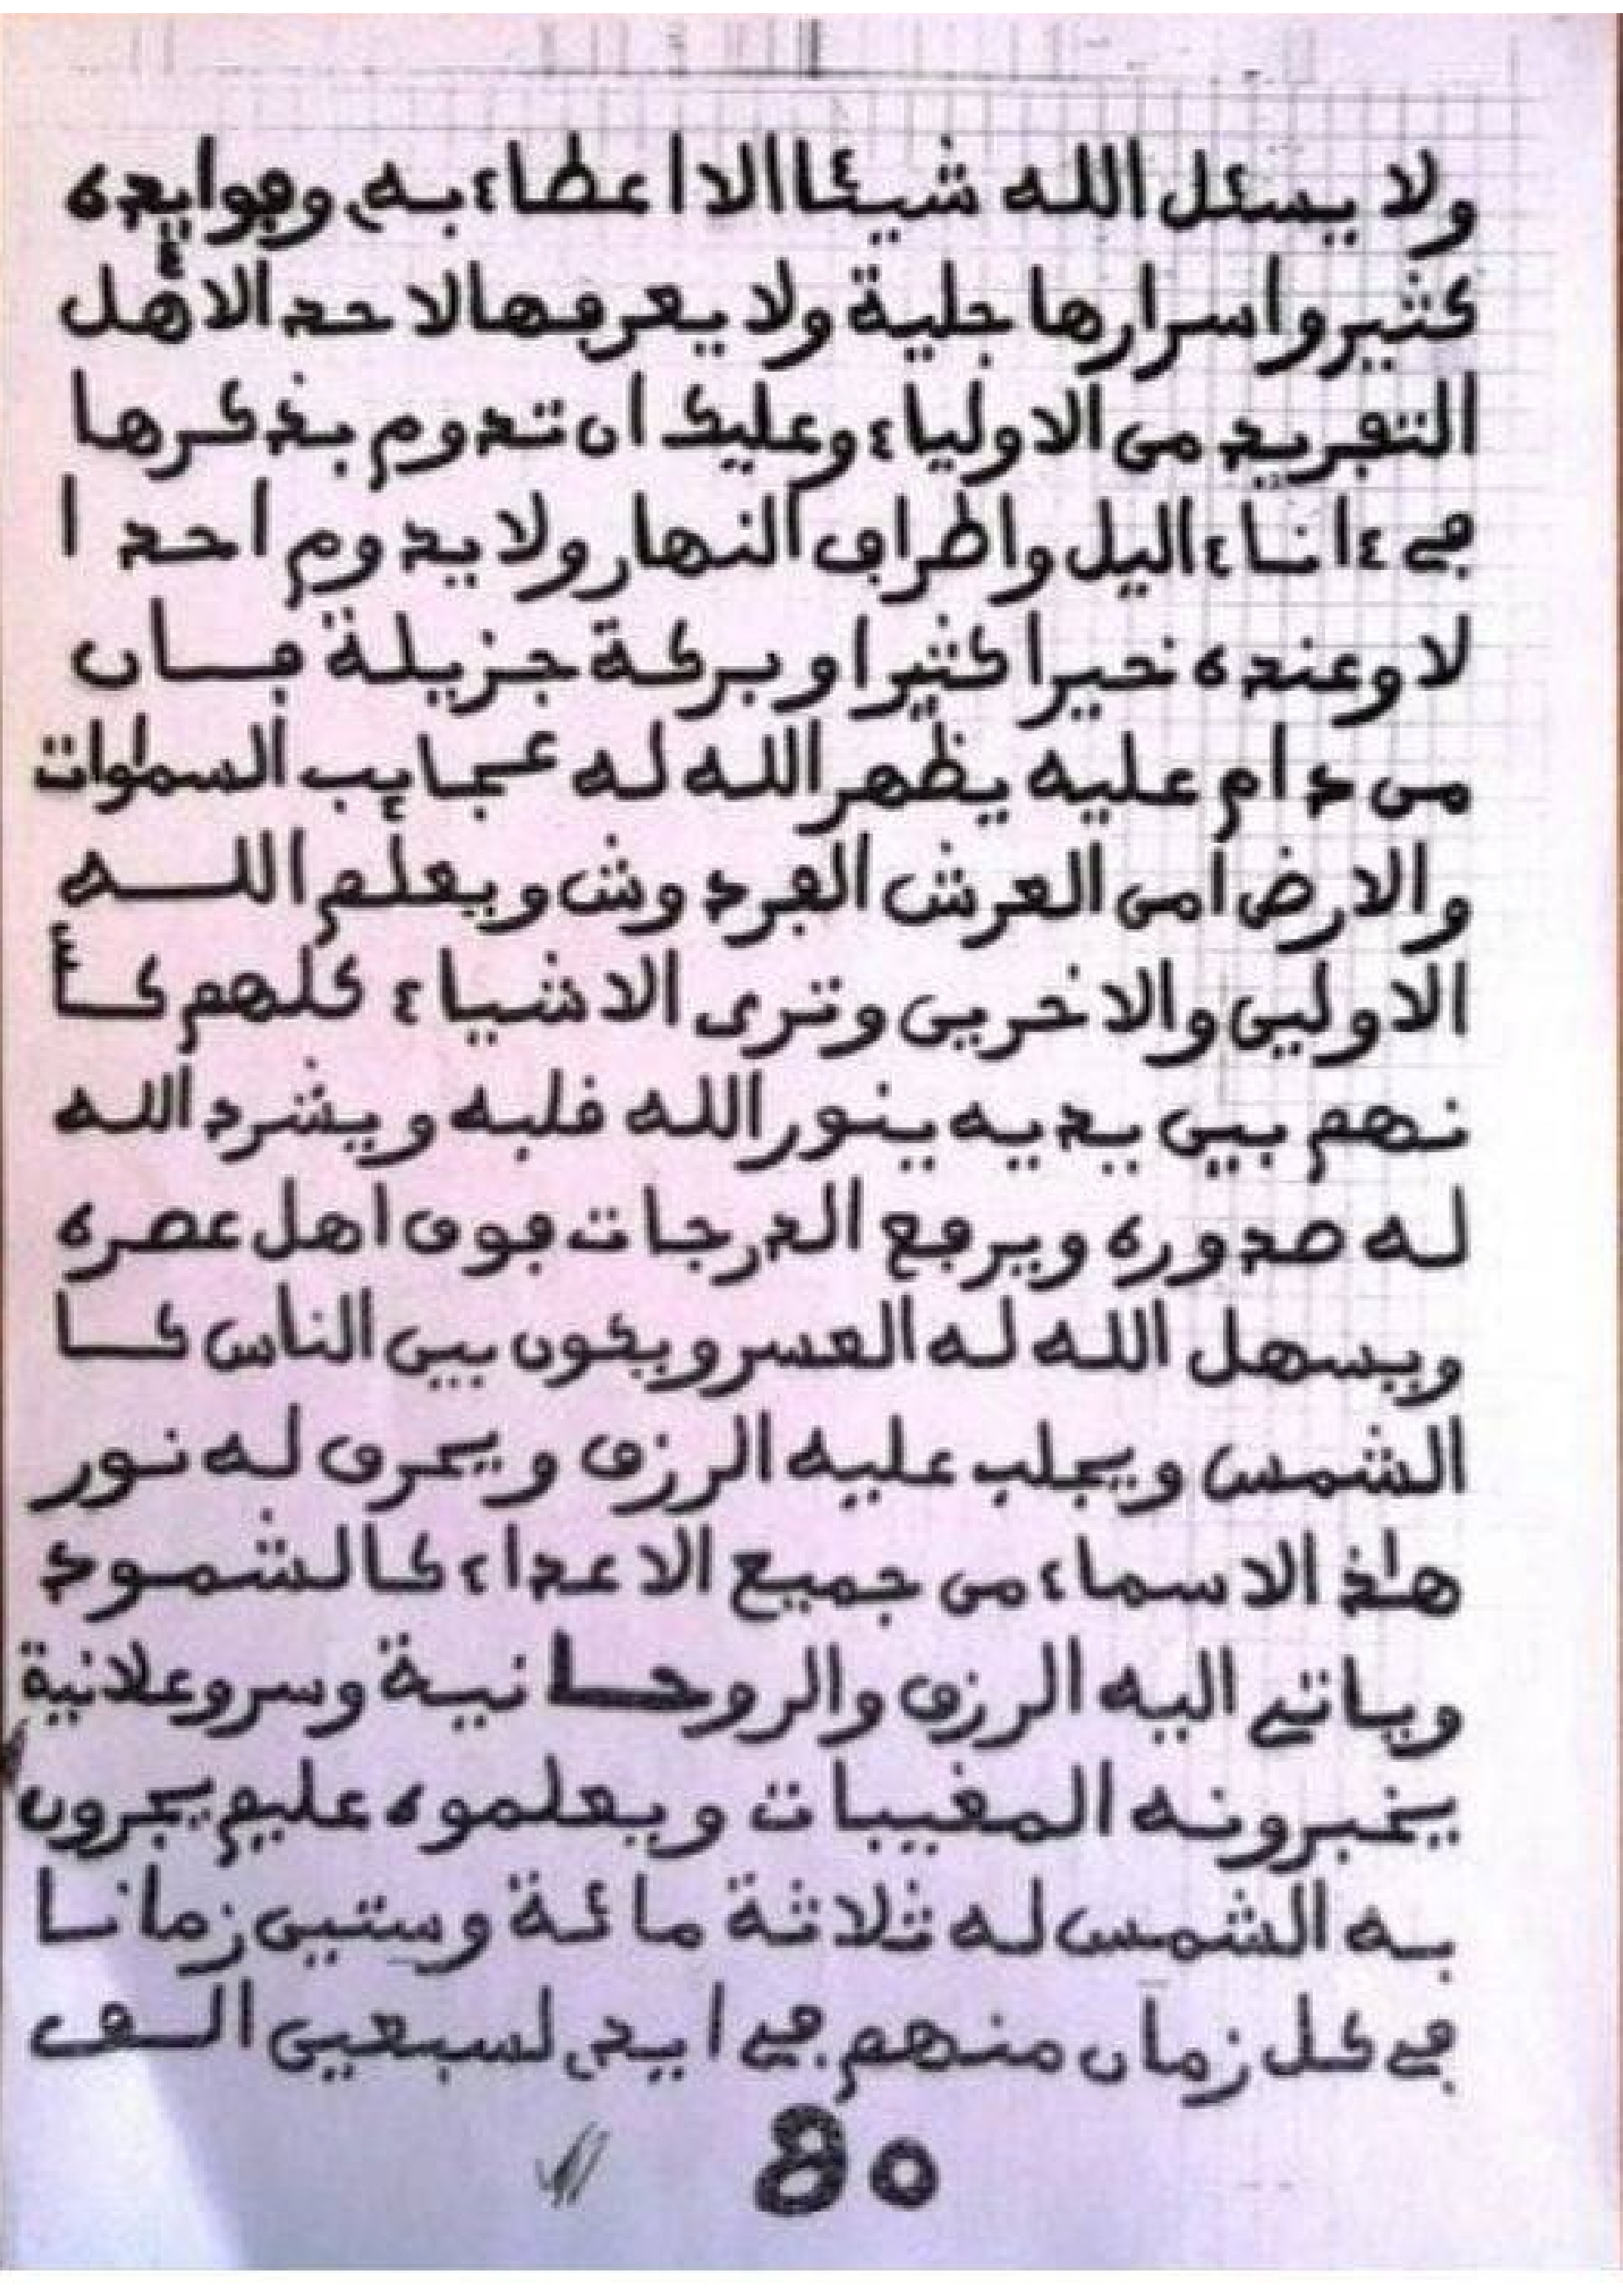 ولا يسئل الله شيئا الا اعطاء به وفوايده
كثير واسرارها جلية ولا يعرفها لاحد الا هل
التفريد من الاولياء وعليك ان تدوم بذكرها
في ءاناء اليل واطراف النهار ولا يدوم احد ا
لا وعنده خيرا كثيرا وبركة جزيلة فان
من دام عليه يظهر الله له عجايب السماوات
والارض امن العرش الفردوش ويعلم الله
الاولين والاخرين وترى الاشياء كلهم كأ
نهم بين يديه ينور الله قلبه ويشرد الله
له صدوره ويرفع الدرجات فوق اهل عصره
ويسهل الله له العسر ويكون بين الناس كا
الشمس ويجلب عليه الرزق ويحرق له نور
هاذ الاسماء من جميع الاعداء كالشمود
وياتي اليه الرزق والروحانية وسر وعلانية
يخبرونه المغيبات ويعلموه عليم يجرون
به الشمس له ثلاثة مائة وستين زمانا
في كل زمان منهم في ايد لسبعين الف
80